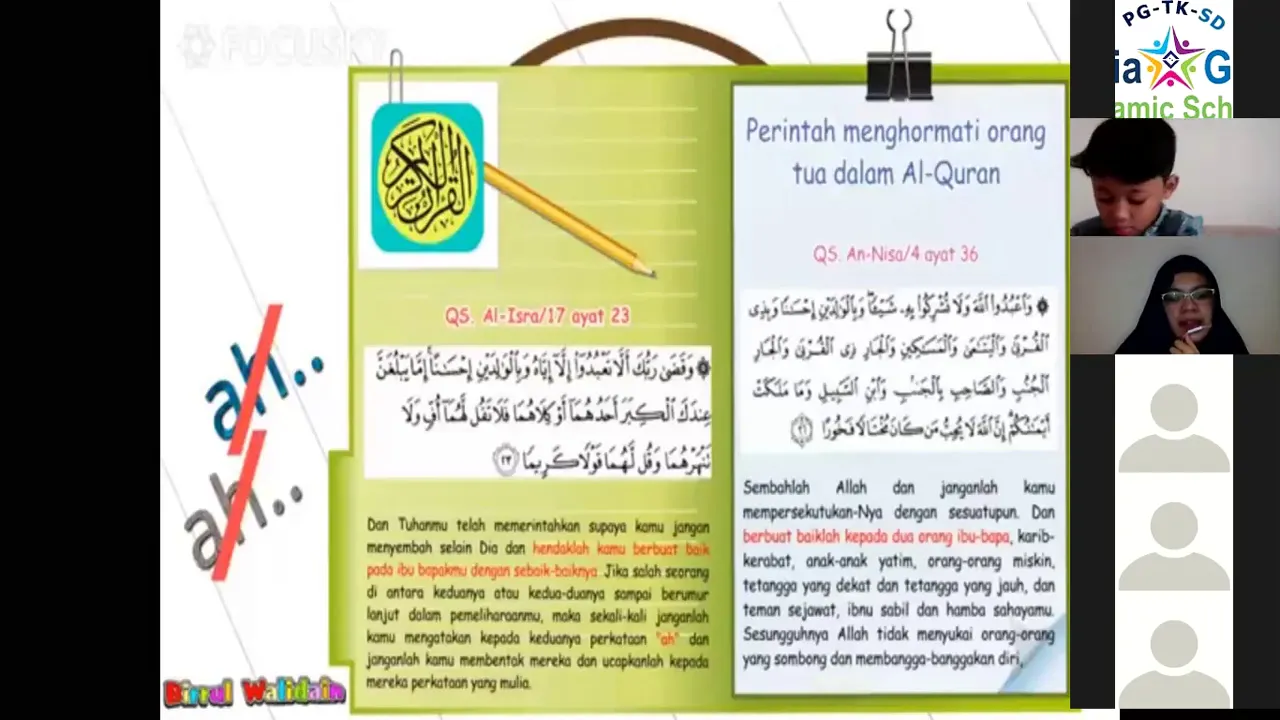 FOCUSKY
QS. Al-Isra/17 ayat 23
۞ وَقَضَىٰ رَبُّكَ أَلَّا تَعْبُدُوٓا۟ إِلَّآ إِيَّاهُ وَبِٱلْوَٰلِدَيْنِ إِحْسَٰنًا ۚ إِمَّا يَبْلُغَنَّ
عِندَكَ ٱلْكِبَرَ أَحَدُهُمَآ أَوْ كِلَاهُمَا فَلَا تَقُل لَّهُمَآ أُفٍّ وَلَا
تَنْهَرْهُمَا وَقُل لَّهُمَا قَوْلًا كَرِيمًا ٢٣
Dan Tuhanmu telah memerintahkan supaya kamu jangan
menyembah selain Dia dan hendaklah kamu berbuat baik
pada ibu bapakmu dengan sebaik-baiknya. Jika salah seorang
di antara keduanya atau kedua-duanya sampai berumur
lanjut dalam pemeliharaanmu, maka sekali-kali janganlah
kamu mengatakan kepada keduanya perkataan "ah" dan
janganlah kamu membentak mereka dan ucapkanlah kepada
mereka perkataan yang mulia.
ah..
ah..
Birrul Walidain
Perintah menghormati orang
tua dalam Al-Quran
QS. An-Nisa/4 ayat 36
۞ وَٱعْبُدُوا۟ ٱللَّهَ وَلَا تُشْرِكُوا۟ بِهِۦ شَيْـًٔا ۖ وَبِٱلْوَٰلِدَيْنِ إِحْسَٰنًا وَبِذِى
ٱلْقُرْبَىٰ وَٱلْيَتَٰمَىٰ وَٱلْمَسَٰكِينِ وَٱلْجَارِ ذِى ٱلْقُرْبَىٰ وَٱلْجَارِ
ٱلْجُنُبِ وَٱلصَّاحِبِ بِٱلْجَنۢبِ وَٱبْنِ ٱلسَّبِيلِ وَمَا مَلَكَتْ
أَيْمَٰنُكُمْ ۗ إِنَّ ٱللَّهَ لَا يُحِبُّ مَن كَانَ مُخْتَالًا فَخُورًا ٣٦
Sembahlah Allah dan janganlah kamu
mempersekutukan-Nya dengan sesuatupun. Dan
berbuat baiklah kepada dua orang ibu-bapa, karib-
kerabat, anak-anak yatim, orang-orang miskin,
tetangga yang dekat dan tetangga yang jauh, dan
teman sejawat, ibnu sabil dan hamba sahayamu.
Sesungguhnya Allah tidak menyukai orang-orang
yang sombong dan membangga-banggakan diri,
PG-TK-SD
ia G
amic Sch